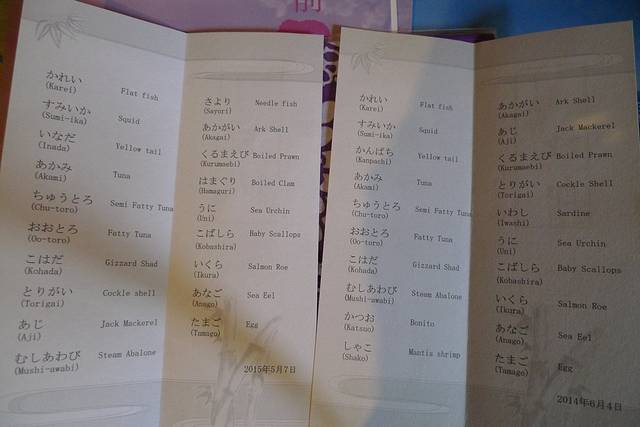 前
かれい Flat fish
(Karei)
すみいか Squid
(Sumi-ika)
いなだ Yellow tail
(Inada)
あかみ Tuna
(Akami)
ちゅうとろ Semi Fatty Tuna
(Chu-toro)
おおとろ Fatty Tuna
(Oo-toro)
こはだ Gizzard Shad
(Kohada)
とりがい Cockle shell
(Torigai)
あじ Jack Mackerel
(Aji)
むしあわび Steam Abalone
(Mushi-awabi)
さより Needle fish
(Sayori)
あかがい Ark Shell
(Akagai)
くるまえび Boiled Prawn
(Kurumaebi)
はまぐり Boiled Clam
(Hamaguri)
うに Sea Urchin
(Uni)
こばしら Baby Scallops
(Kobashira)
いくら Salmon Roe
(Ikura)
あなご Sea Eel
(Anago)
たまご Egg
(Tamago)
2015年5月7日
かれい Flat fish
(Karei)
すみいか Squid
(Sumi-ika)
かんぱち Yellow tail
(Kanpachi)
あかみ Tuna
(Akami)
ちゅうとろ Semi Fatty Tuna
(Chu-toro)
おおとろ Fatty Tuna
(Oo-toro)
こはだ Gizzard Shad
(Kohada)
むしあわび Steam Abalone
(Mushi-awabi)
かつお Bonito
(Katsuo)
しゃこ Mantis shrimp
(Shako)
あかがい Ark Shell
(Akagai)
あじ Jack Mackerel
(Aji)
くるまえび Boiled Prawn
(Kurumaebi)
とりがい Cockle Shell
(Torigai)
いわし Sardine
(Iwashi)
うに Sea Urchin
(Uni)
こばしら Baby Scallops
(Kobashira)
いくら Salmon Roe
(Ikura)
あなご Sea Eel
(Anago)
たまご Egg
(Tamago)
2014年6月4日